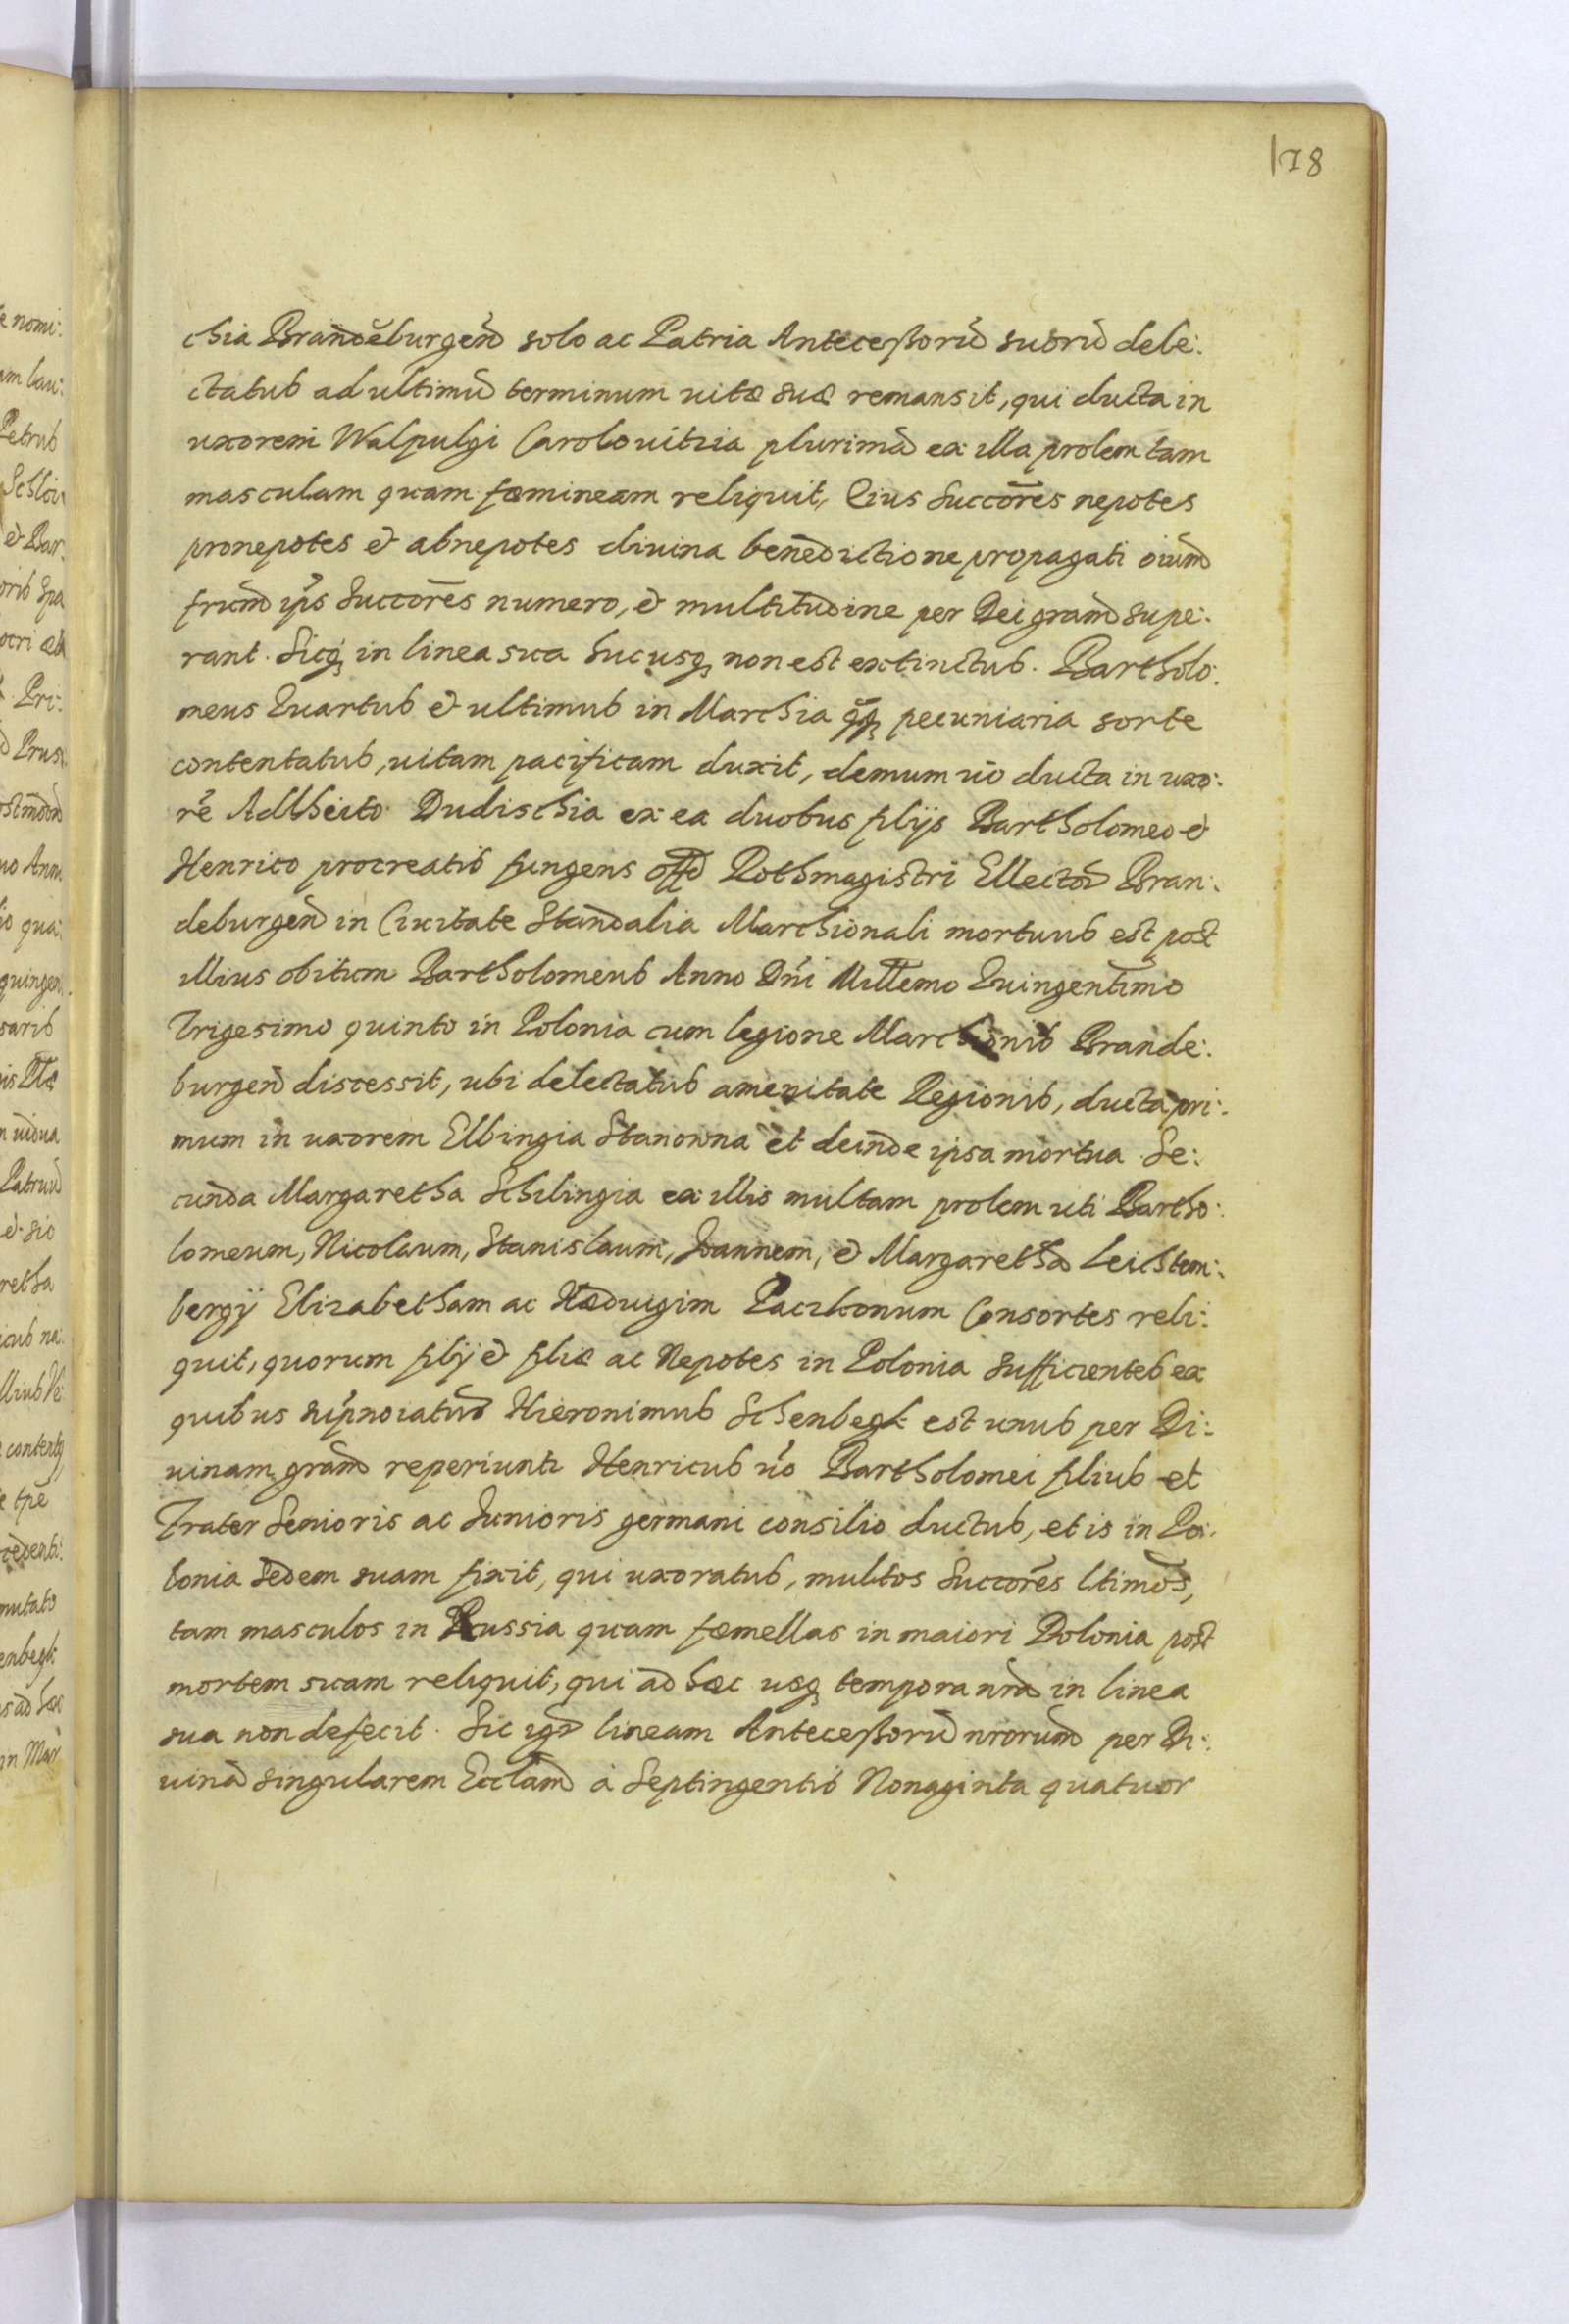 178
chia Brandĕburgeñ solo ac Patria Anteceßorũ suorũ dele:
ctatus ad ultimũ terminum uitæ suæ remansit, qui ducta in
uxorem Walpulgi Carolouitzia plurimã ex illa prolem tam
masculam quam fœmineam reliquit, Eius Succo͞res nepotes
pronepotes & abnepotes diuina benedictione propagati oium̃
frum̃ ip̃s Succo͞res numero, & multitudine per Dei gram̃ supe:
rant. Sicq̨ in linea sua hucusq̨ non est extinctus. Bartholo:
meus Quartus & ultimus in Marchia qq̨ pecuniaria sorte
contentatus, uitam pacificam duxit, demum uo͞ ducta in uxo:
rẽ Dudischia ex ea duobus filijs Bartholomeo &
Henrico procreatis fungens off̃o Rothmagistri Ellector̃ Bran:
deburgeñ in Ciuitate Standalia Marchionali mortuus est post
illius obitum Bartholomeus Anno Dñi Millemo Quingentimo
Trigesimo quinto in Polonia cum legione Marchionis Brande:
burgeñ discessit, ubi delectatus amenitate Regionis, ducta pri:
mum in uxorem Elbingia Stanowna et deinde ipsa mortua Se:
cunda Margaretha Schilingia ex illis multam prolem uti Bartho:
lomeum, Nicolaum, Stanislaum, Joannem, & Margarethã Leichtem:
bergij Elizabetham ac Hædvigim Paczkonum Consortes reli:
quit, quorum filij & filiæ ac Nepotes in Polonia sufficientes ex
quibus Hieronimus Schenbegk est unus per Di:
uinam gram̃ reperiunt Henricus uo͞ Bartholomei filius et
Frater Senioris ac Junioris germani consilio ductus, et is in Po:
lonia sedem suam fixit, qui uxoratus, multos Succo͞res ltimos,
tam masculos in Prussia quam fœmellas in maiori Polonia post
mortem suam reliquit, qui ad hæc usq̨ tempora nrã in linea
sua non defecit. Sic igr̃ lineam Anteceßorũ nrorum̃ per Di:
uinã singularem Ecclam̃ à Septingentis Nonaginta quatuor